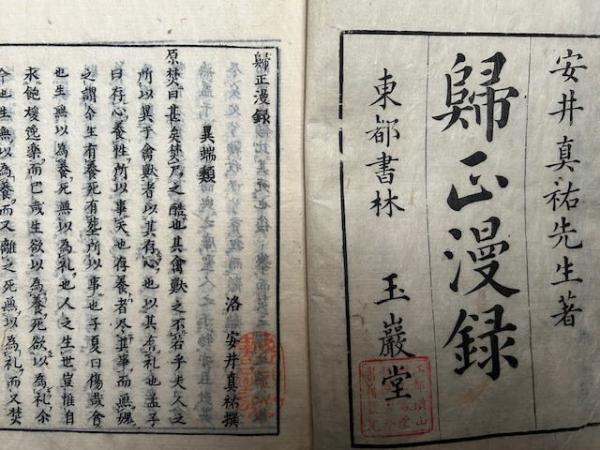 安井真祐先生著
歸正漫録
東都書林 玉巖堂
歸正漫録
異端類
洛 安井真祐撰
原焚曰甚矣焚尸之酷也其禽獸之不若乎夫人之
所以異于禽獸者以其有心也以其有礼也孟子
曰存心養性所以事天也存養者尽其事而無媿
之謂生有養死有葬所以事也子夏曰傷哉貧
也生無以為養死無以為礼也人之生世豈惟自
求飽煖逸楽而已哉生欲以為養死欲以為礼
今也生無以為養而又離之死無以為礼而又焚